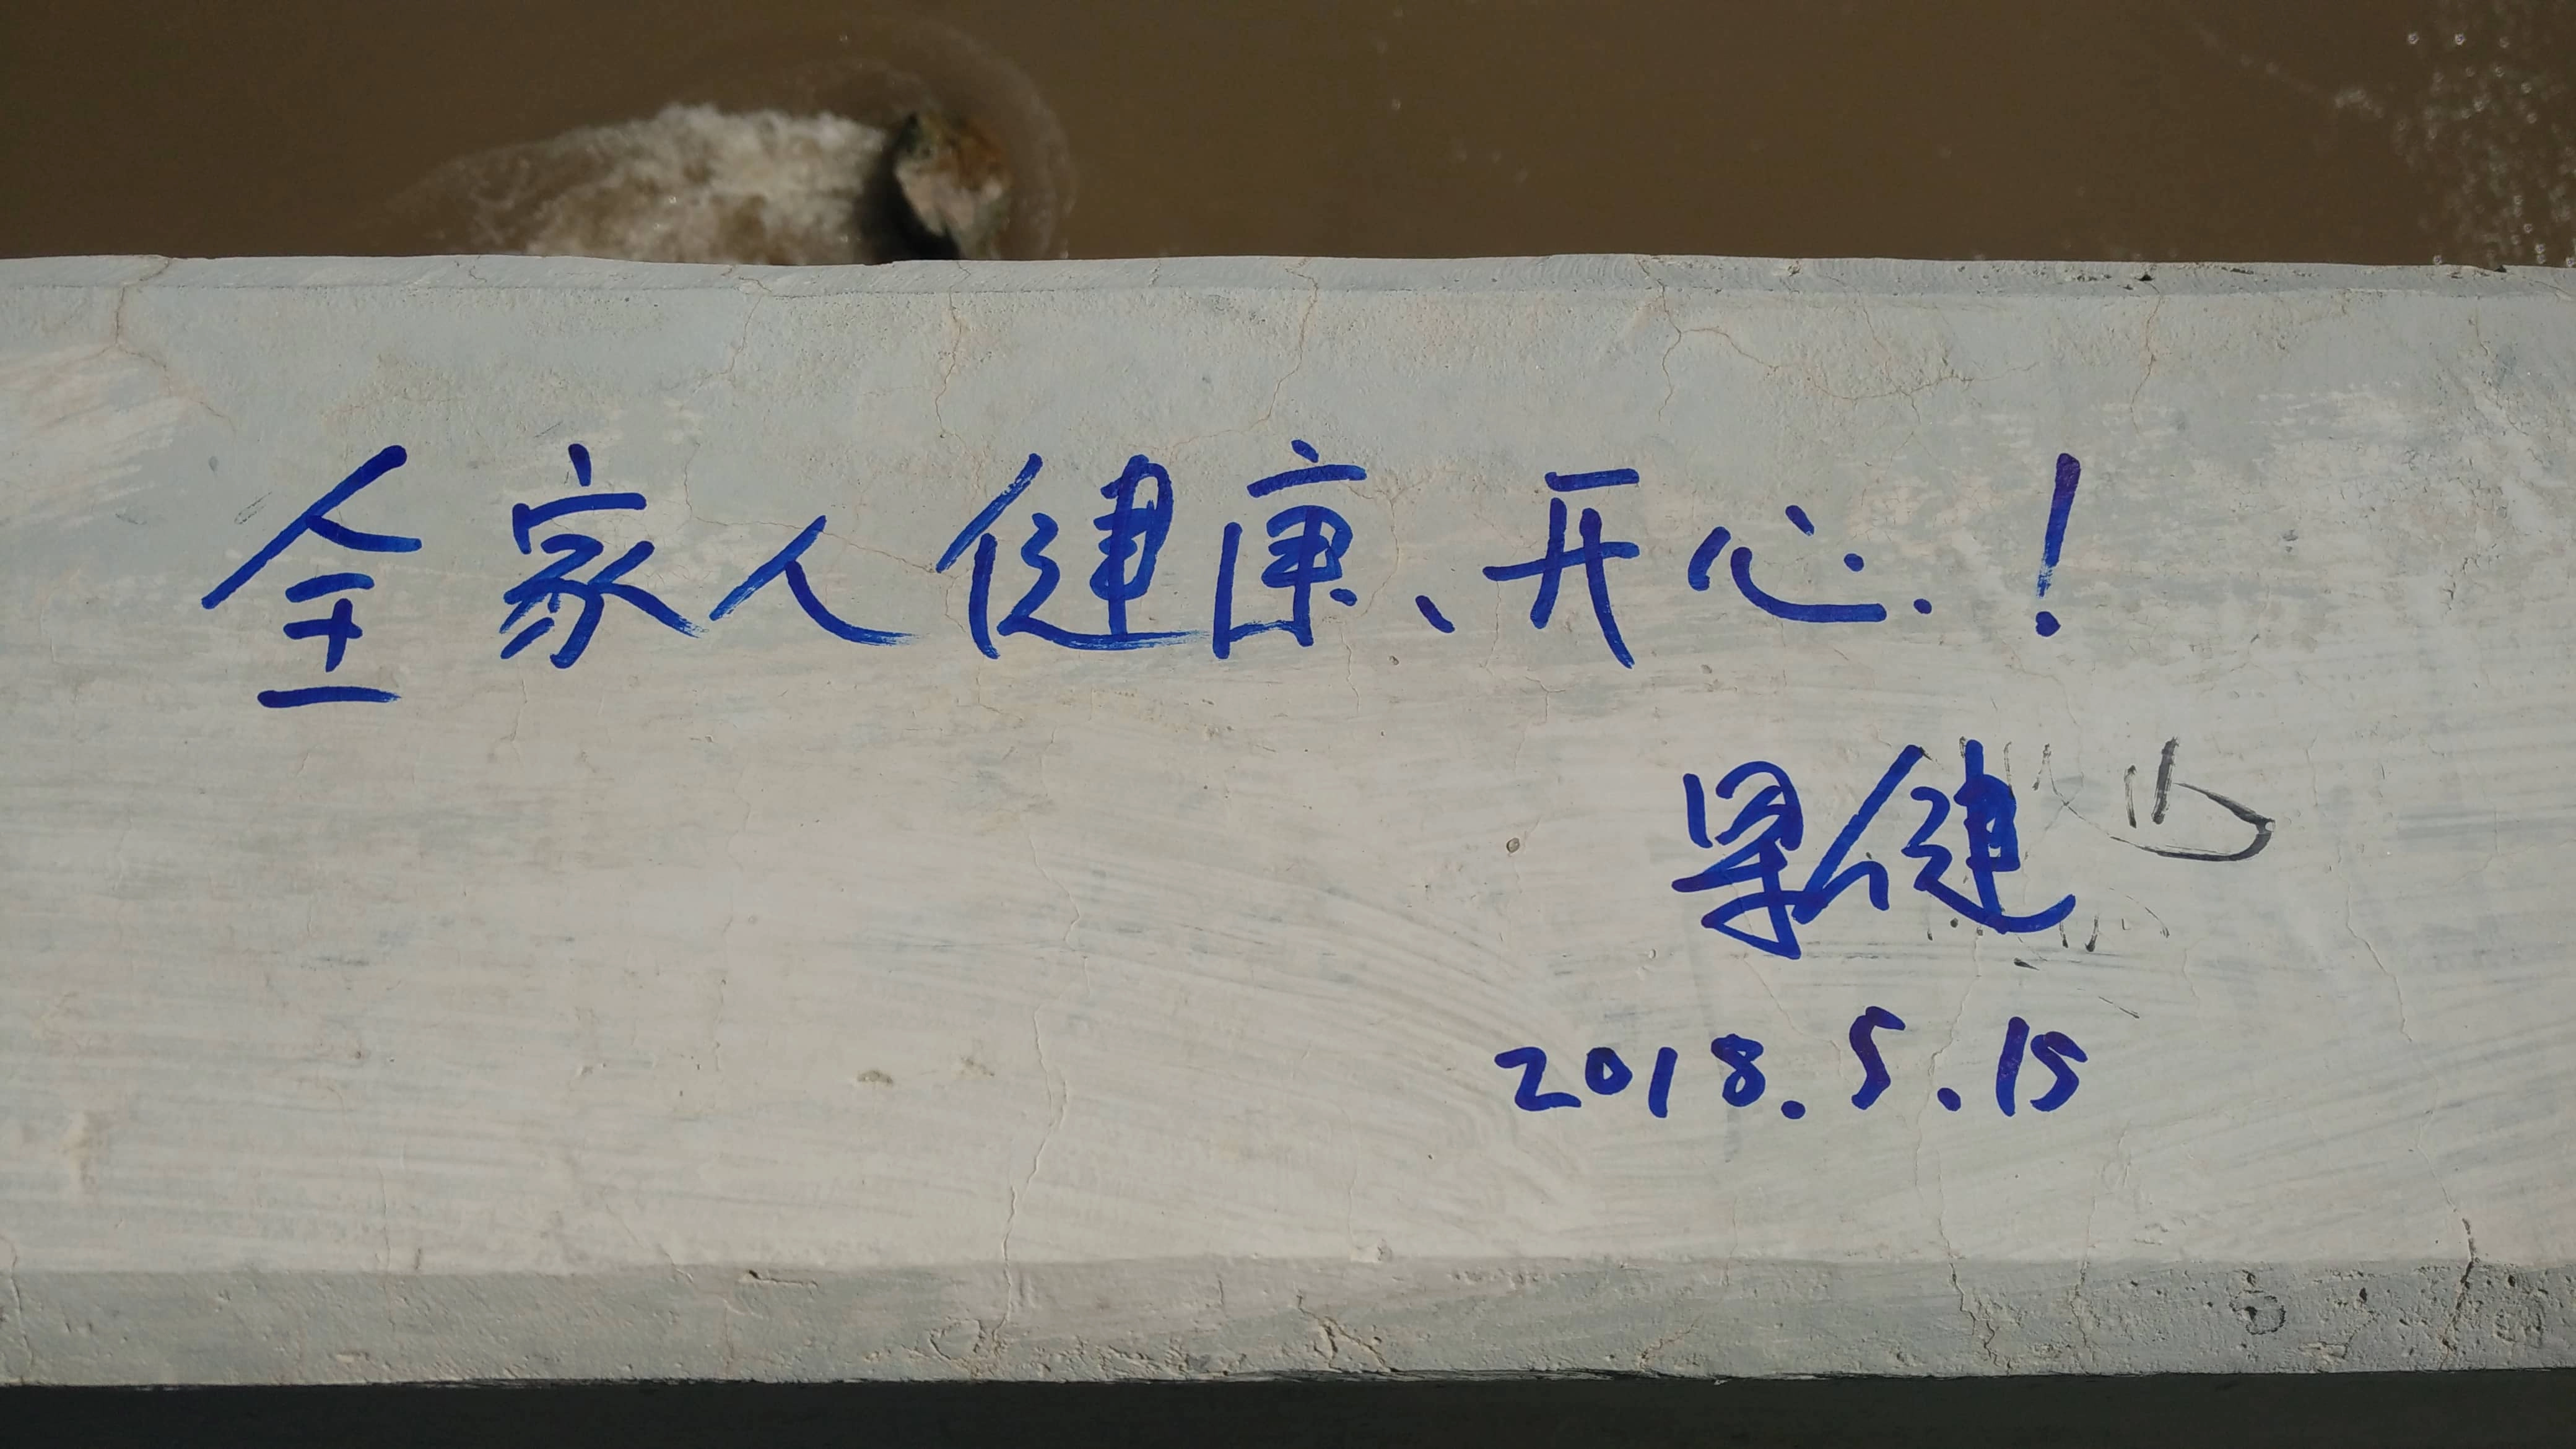 全家人健康、开心.!
健
2018.5.15